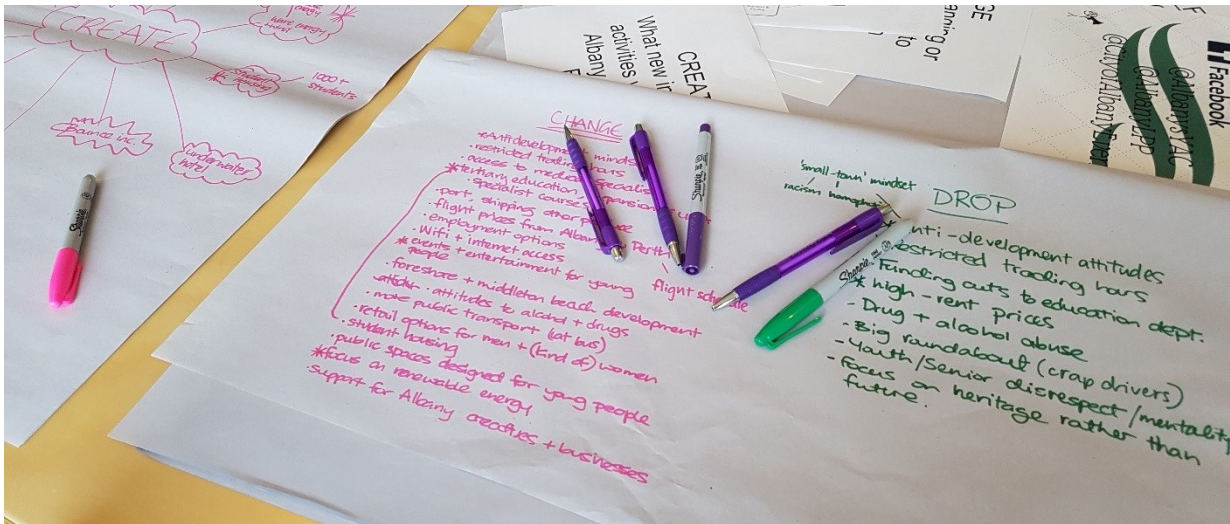 CREATE
wave energy
student housing
1000+ students
Bounce inc.
underwater hotel
Sharpie
CREAT
What new in
activities
Albany
GE
anning or
to
Facebook
@AlbanysYAC
@AlbanyLPP
@CityofAlbany
CHANGE
restricted trading hours
access to medical specialists
*tertiary education
specialist courses
port, shipping other
flight prices from Albany Perth
flight schedule
employment options
Wifi + internet access
*events + entertainment for young
people
foreshore + middleton beach development
attitudes to alcohol + drugs
more public transport (cat bus)
retail options for men + (kind of) women
student housing
public spaces designed for young people
*focus on renewable
energy
support for Albany creatives + businesses
Sharpie
'small-town' mindset
racism
DROP
anti-development attitudes
restricted trading hours
Funding cuts to education dept.
* high-rent prices
- Drug + alcohol abuse
- Big roundabout (crap drivers)
- Youth/Senior disrespect/mentality
- Focus on heritage rather than
future.
Sharpie